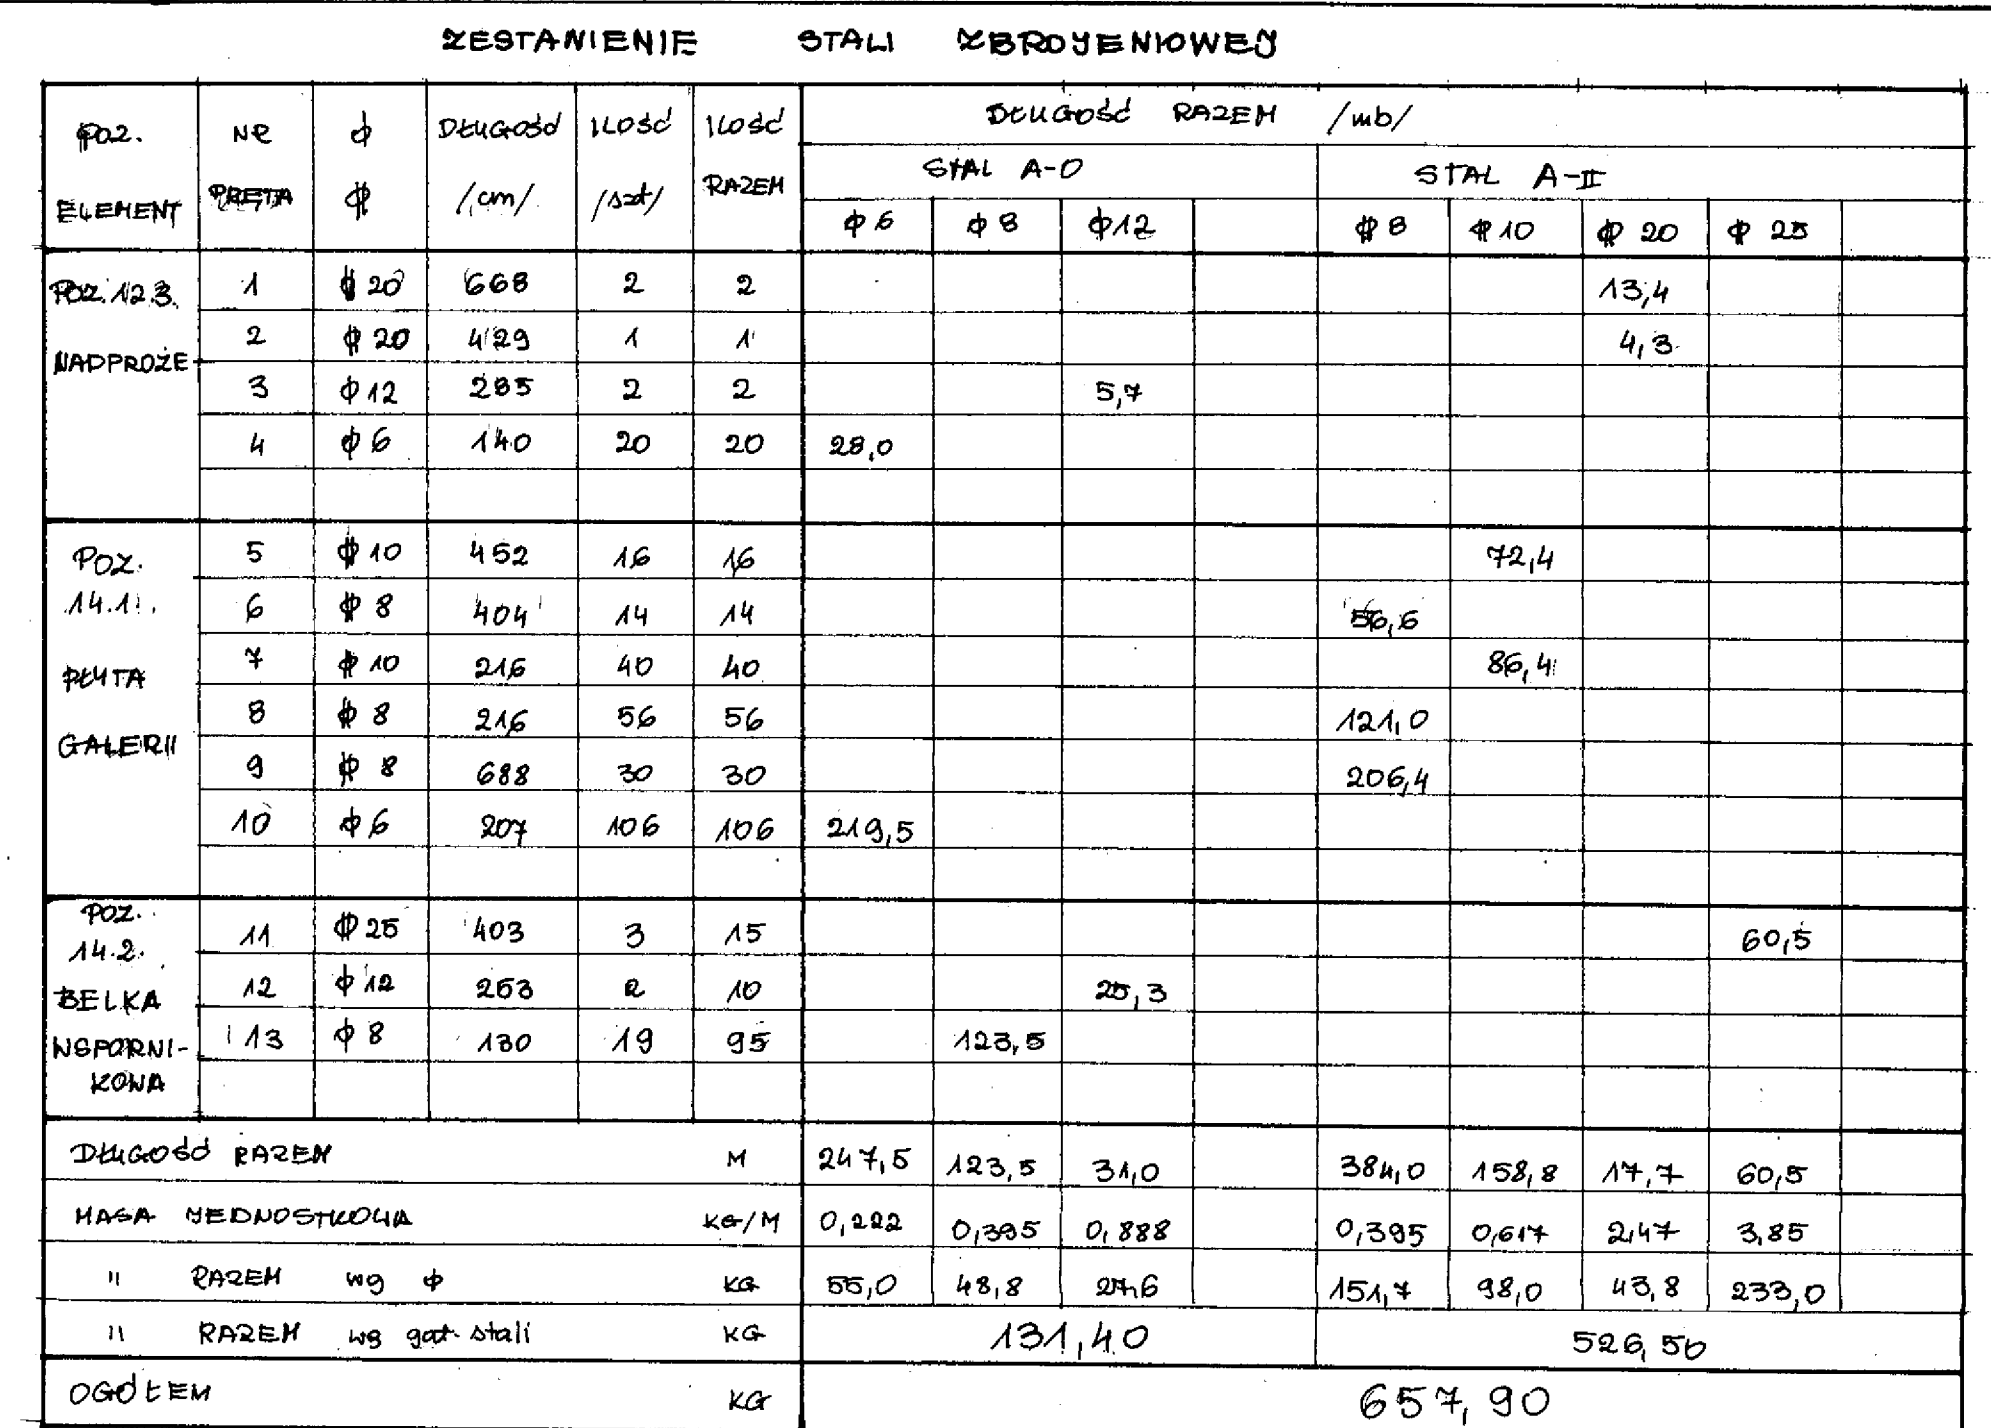 ZESTAWIENIE STALI ZBROJENIOWEJ
POZ. ELEMENT NR PRĘTA ϕ DŁUGOŚĆ /cm/ ILOŚĆ /szt/ ILOŚĆ RAZEM DŁUGOŚĆ RAZEM /mb/
STAL A-0 STAL A-II
ϕ 6 ϕ 8 ϕ12 # 8 # 10 # 20 # 25
POZ. 12.3. NADPROŻE
1 # 20 668 2 2 13,4
2 # 20 429 1 1 4,3
3 ϕ 12 285 2 2 5,7
4 ϕ 6 140 20 20 28,0
POZ. 14.1. PŁYTA GALERII
5 # 10 452 16 16 72,4
6 # 8 404 14 14 56,6
7 # 10 216 40 40 86,4
8 # 8 216 56 56 121,0
9 # 8 688 30 30 206,4
10 ϕ 6 207 106 106 219,5
POZ. 14.2. BELKA WSPORNI-KOWA
11 # 25 403 3 15 60,5
12 ϕ 12 253 2 10 25,3
13 ϕ 8 130 19 95 123,5
DŁUGOŚĆ RAZEM M 247,5 123,5 31,0 384,0 158,8 17,7 60,5
MASA JEDNOSTKOWA KG/M 0,222 0,395 0,888 0,395 0,617 2,47 3,85
" RAZEM wg ϕ KG 55,0 48,8 27,6 151,7 98,0 43,8 233,0
" RAZEM wg gat. stali KG 131,40 526,50
OGÓŁEM KG 657,90